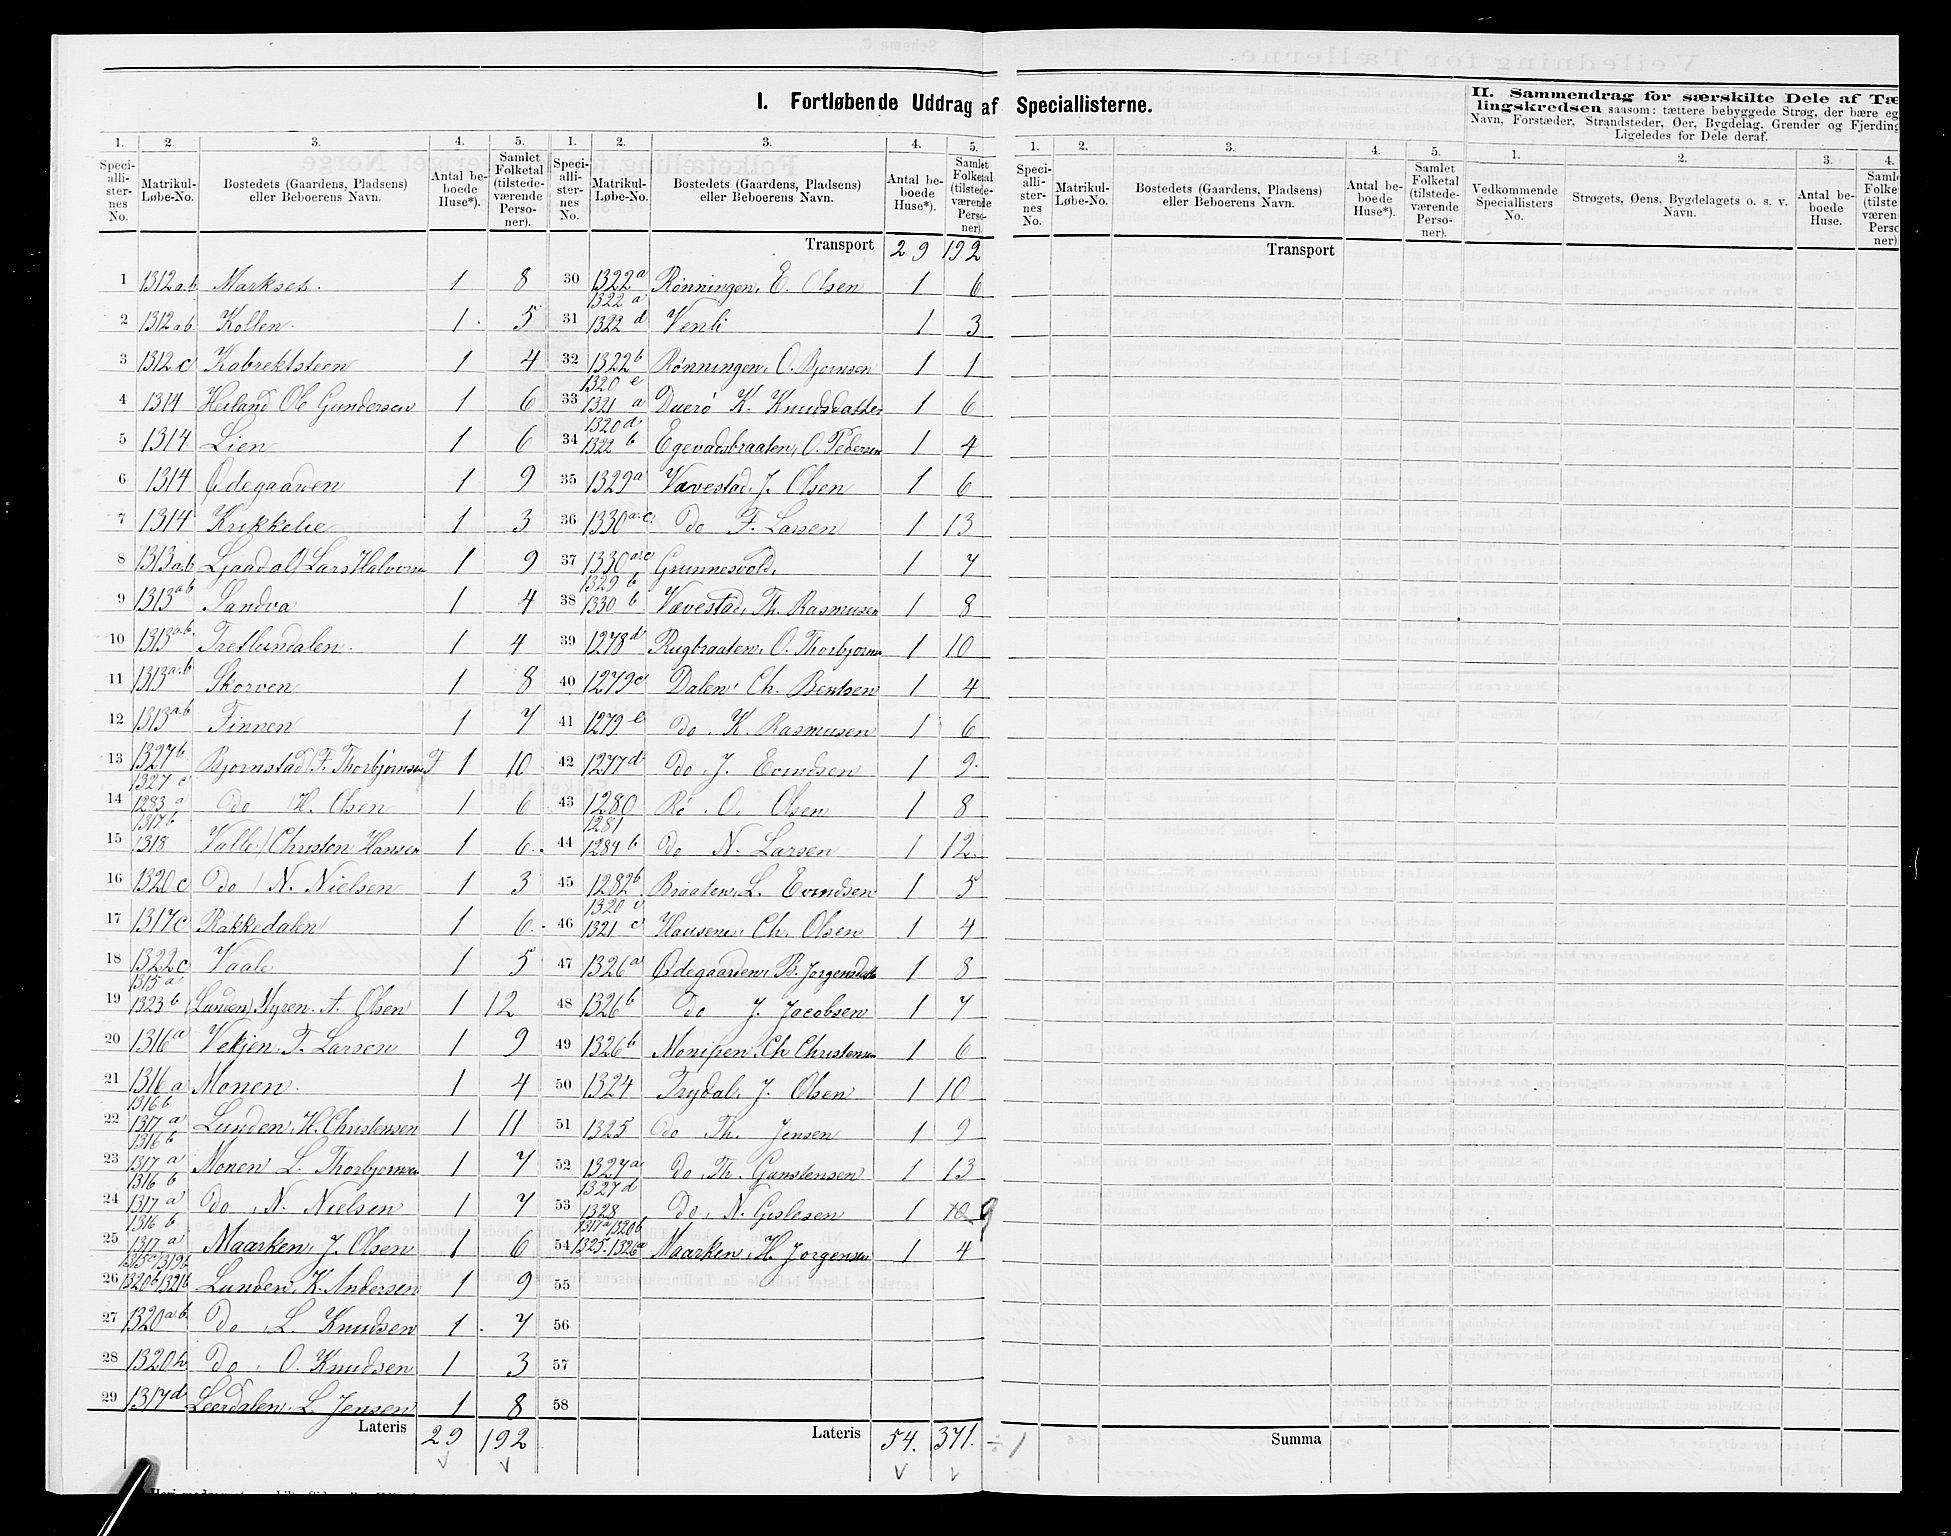 I. Fortløbende Uddrag af Speciallisterne.
II. Sammendrag for særskilte Dele af Tæ
lingskredsen saasom: tættere bebyggede Strøg, der bære eg
Navn, Forstæder, Strandsteder, Øer, Bygdelag, Grender og Fjerding
Ligeledes for Dele deraf.
1. 2. 3. 4. 5. 1. 2. 3. 4. 5. 1. 2. 3. 4. 5. 1. 2. 3. 4.
Speci-alli-ster-nes No. Matrikul-Løbe-No. Bostedets (Gaardens, Pladsens) eller Beboerens Navn. Antal be-boede Huse*). Samlet Folketal (tilstede-værende Perso-ner).
Speci-alli-ster-nes No. Matrikul-Løbe-No. Bostedets (Gaardens, Pladsens) eller Beboerens Navn. Antal be-boede Huse*). Samlet Folketal (tilstede-værende Perso-ner).
Speci-alli-ster-nes No. Matrikul-Løbe-No. Bostedets (Gaardens, Pladsens) eller Beboerens Navn. Antal be-boede Huse*). Samlet Folketal (tilstede-værende Perso-ner).
Vedkommende Speciallisters No. Strøgets, Øens, Bygdelagets o. s. v. Navn. Antal be-boede Huse. Saml Folke (tilste væren Perso ner)
1 1312 a.b Marksets. 1 8
2 1312 a.b Kollen. 1 5
3 1312 c Kabrektsteen 1 4
4 1314 Heiland Ole Gundersen 1 6
5 1314 Lien 1 6
6 1314 Ødegaarden 1 9
7 1314 Krikkelie 1 3
8 1313 a.b Ljaadal / Lars Halvorsen 1 9
9 1313 a.b Sandva 1 4
10 1313 a.b. Tretlundalen. 1 4
11 1313 a.b Skorven 1 8
12 1313 a.b Finnen 1 7
13 1327 b Bjornstad / F. Thorbjørnsen F 1 10
14 1327 c 1283 a do / H. Olsen 1 6
15 1317 b 1318 Valle / Christen Hansen 1 6
16 1320 c Do / N. Nielsen 1 3
17 1317 c Rakkedalen 1 6
18 1322 c Vaale 1 5
19 1315 a 1323 b (Lunden) Myren. A. Olsen 1 12
20 1316 a Vekjen. T. Larsen 1 9
21 1316 a Monen. 1 4
22 1316 b 1317 a Lunden, H. Christensen 1 11
23 1316 b 1317 a Monen L. Thorbjornsen 1 7
24 1316 b 1317 a Do, N. Nielsen 1 7
25 1316 b 1317 a Maarken, J. Olsen 1 6
26 1315 c 1319 b 1320 b 1321 b Lunden, K. Andersen 1 9
27 1320 a.b. Do, L. Knudsen 1 7
28 1320 b Do, O. Knudsen 1 3
29 1317 d Leerdalen. L. Jensen 1 8
Lateris 29 192
Transport 29 192
30 1322 a Rønningen, E. Olsen 1 6
31 1322 a 1322 d Venli 1 3
32 1322 b Rønningen, O. Bjornsen 1 1
33 1320 e 1321 a Duerø K. Knudsdatter 1 6
34 1320 d 1322 b Egevadsbraaten, O. Pedersen 1 4
35 1329 a Vævestad, J. Olsen 1 6
36 1330 a.c. Do F. Larsen 1 13
37 1330 a.c Grunnesvold, 1 7
38 1329 b 1330 b Vævestad, Th. Rasmusen 1 8
39 1278 d Rugbraaten, O. Thorbjornsen 1 10
40 1279 c Dalen, Ch. Bentsen 1 4
41 1279 e do, K. Rasmusen 1 6
42 1277 d Do, J. Evindsen 1 9
43 1280 Rø, O. Olsen 1 8
44 1281 1284 b Do N. Larsen 1 12
45 1282 b Braaten, L. Evindsen 1 5
46 1320 c 1321 c Hausene, Ch. Olsen 1 4
47 1326 a Ødegaarden, B. Jorgensdatter 1 8
48 1326 b Do J. Jacobsen 1 7
49 1326 b Monipen, Ch Christensen 1 6
50 1324 Trydal, J. Olsen 1 10
51 1325 do Th. Jensen 1 9
52 1327 a do, Th. Gunstensen 1 13
53 1327 d 1328 Do, N. Gislesen 1 10 9
54 1317 a 1320 b 1325. 1326 a Maarken, H. Jorgensen 1 4
55
56
57
58
Lateris 54. 371. ÷ 1
Transport
Summa